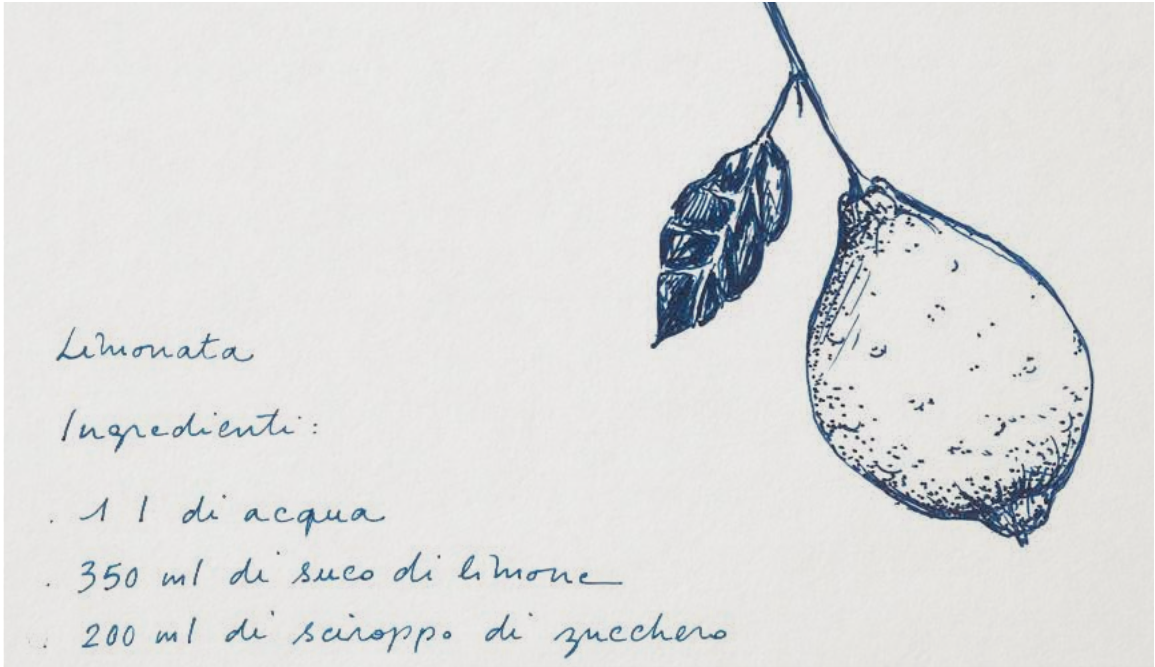 Limonata
Ingredienti:
. 1 l di acqua
. 350 ml di suco di limone
. 200 ml di sciroppo di zucchero